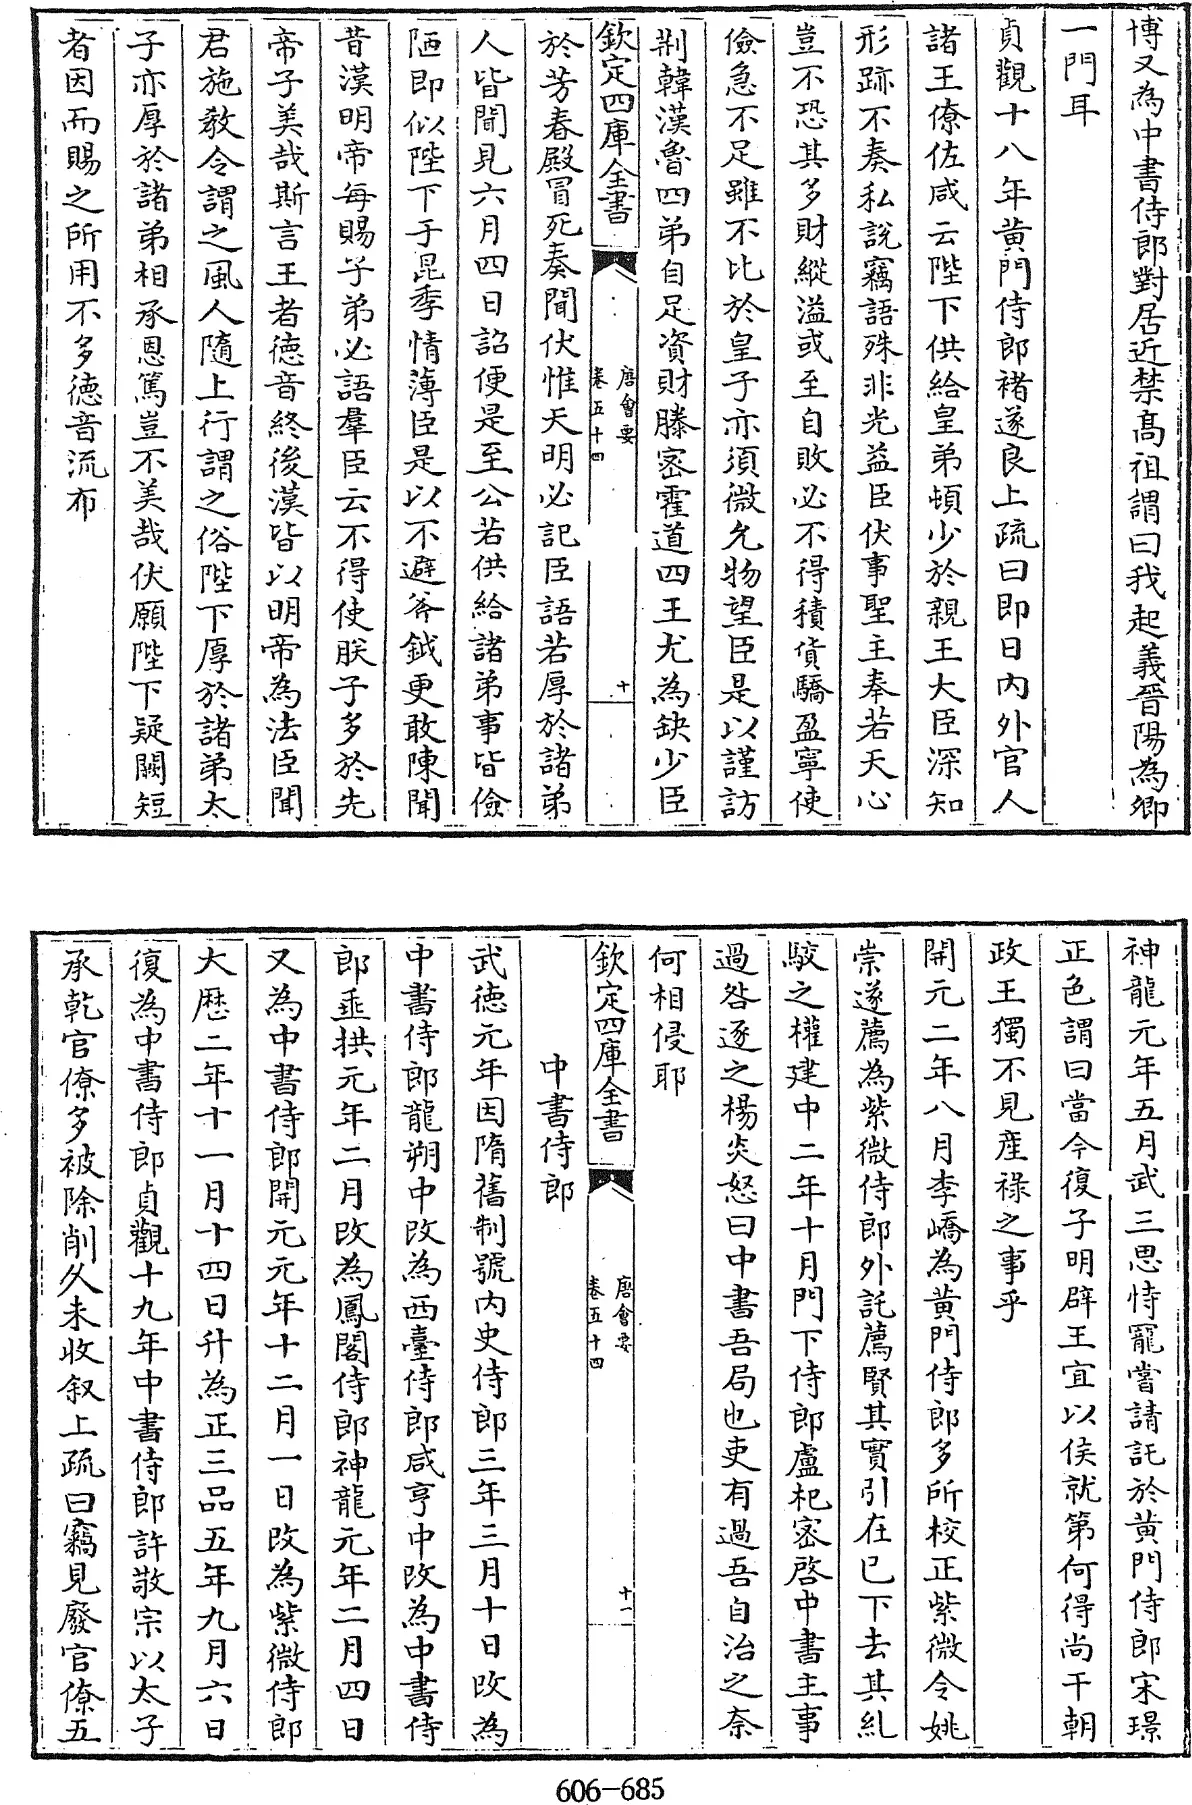 博又為中書侍郎對居近禁髙祖謂曰我起義晉陽為卿
一門耳
貞觀十八年黄門侍郎褚遂良上疏曰即日内外官人
諸王僚佐咸云陛下供給皇弟頓少於親王大臣深知
形跡不奏私說竊語殊非光益臣伏事聖主奉若天心
豈不恐其多財縱溢或至自敗必不得積貨驕盈寧使
儉急不足雖不比於皇子亦須微允物望臣是以謹訪
荆韓漢魯四弟自足資財滕密霍道四王尤為缺少臣
欽定四庫全書
唐會要
卷五十四
十
於芳春殿冒死奏聞伏惟天明必記臣語若厚於諸弟
人皆聞見六月四日詔便是至公若供給諸弟事皆儉
陋即似陛下于昆季情薄臣是以不避斧鉞更敢陳聞
昔漢明帝每賜子弟必語羣臣云不得使朕子多於先
帝子美哉斯言王者徳音終後漢皆以明帝為法臣聞
君施教令謂之風人隨上行謂之俗陛下厚於諸弟太
子亦厚於諸弟相承恩篤豈不美哉伏願陛下疑闕短
者因而賜之所用不多徳音流布
神龍元年五月武三思恃寵嘗請託於黄門侍郎宋璟
正色謂曰當今復子明辟王宜以侯就第何得尚干朝
政王獨不見産祿之事乎
開元二年八月李嶠為黄門侍郎多所校正紫微令姚
崇遂薦為紫微侍郎外託薦賢其實引在已下去其糺
駮之權建中二年十月門下侍郎盧杞密啓中書主事
過咎逐之楊炎怒曰中書吾局也吏有過吾自治之奈
何相侵耶
欽定四庫全書
唐會要
卷五十四
十一
中書侍郎
武徳元年因隋舊制號内史侍郎三年三月十日改為
中書侍郎龍朔中改為西臺侍郎咸亨中改為中書侍
郎垂拱元年二月改為鳳閣侍郎神龍元年二月四日
又為中書侍郎開元元年十二月一日改為紫微侍郎
大歴二年十一月十四日升為正三品五年九月六日
復為中書侍郎貞觀十九年中書侍郎許敬宗以太子
承乾官僚多被除削久未收叙上疏曰竊見廢官僚五
606-685